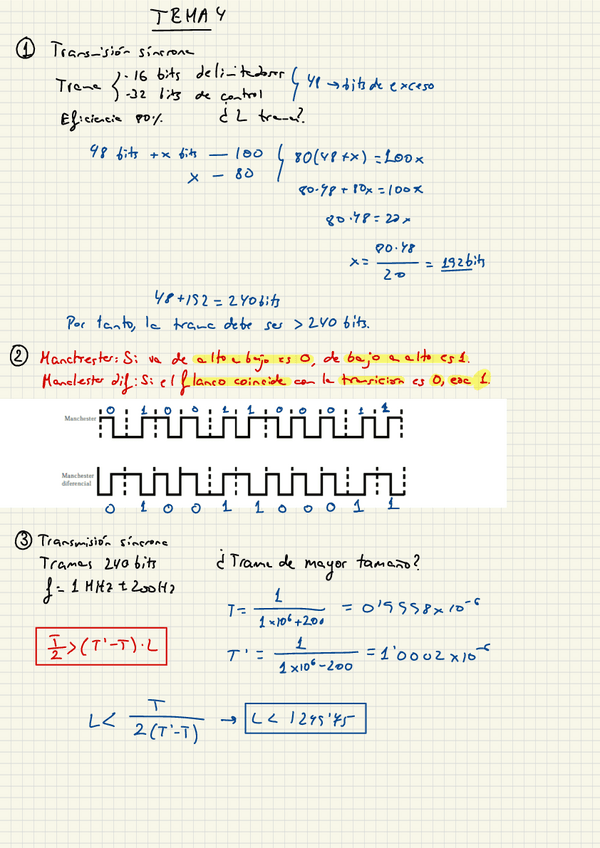 TEMA 4
① Transmisión síncrona
Trama { -16 bits delimitadores
-32 bits de control } 48 → bits de exceso
Eficiencia 80% ¿L trama?
48 bits + x bits — 100
x — 80
80(48+x) = 100x
80·48 + 80x = 100x
80·48 = 20x
x = 80·48 / 20 = 192 bits
48+192 = 240 bits
Por tanto, la trama debe ser > 240 bits.
② Manchester: Si va de alto a bajo es 0, de bajo a alto es 1.
Manchester dif: Si el flanco coincide con la transicion es 0, eoc 1.
0 1 0 0 1 1 0 0 0 1 1
Manchester
Manchester
diferencial
0 1 0 0 1 1 0 0 0 1 1
③ Transmisión síncrona
Tramas 240 bits ¿Trama de mayor tamaño?
f = 1 MHz ± 200 Hz
T = 1 / 1×10⁶+200 = 0'9998×10⁻⁶
T/2 > (T'-T)·L
T' = 1 / 1×10⁶-200 = 1'0002×10⁻⁶
L < T / 2(T'-T) → L < 1249'75